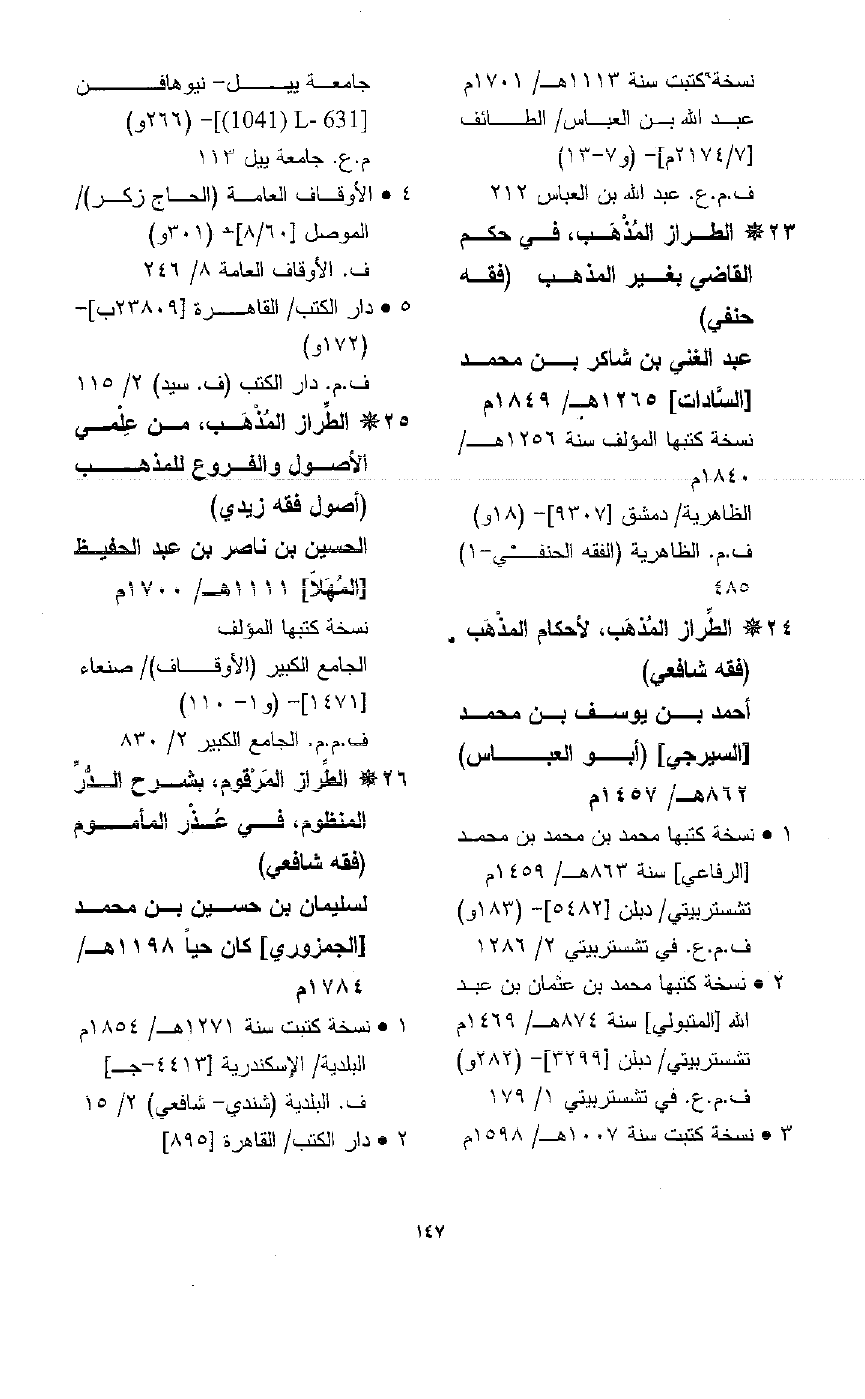 نسخة كتبت سنة ١١١٣هـ/ ١٧٠١م
عبد الله بن العباس/ الطائف
[٢١٧٤/٧م]- (و٧-١٣)
ف.م.ع. عبد الله بن العباس ٢١٢
٢٣ * الطراز المُذْهَب، في حكم
القاضي بغير المذهب (فقه
حنفي)
عبد الغني بن شاكر بن محمد
[السَّادات] ١٢٦٥هـ/ ١٨٤٩م
نسخة كتبها المؤلف سنة ١٢٥٦هـ/
١٨٤٠م
الظاهرية/ دمشق [٩٣٠٧]- (١٨و)
ف.م. الظاهرية (الفقه الحنفي-١)
٤٨٥
٢٤ * الطِّراز المُذهَب، لأحكام المذْهَب
(فقه شافعي)
أحمد بن يوسف بن محمد
[السيرجي] (أبو العباس)
٨٦٢هـ/ ١٤٥٧م
١ • نسخة كتبها محمد بن محمد بن محمد
[الرفاعي] سنة ٨٦٣هـ/ ١٤٥٩م
تشستربيتي/ دبلن [٥٤٨٢]- (١٨٣و)
ف.م.ع. في تشستربيتي ٢/ ١٢٨٦
٢ • نسخة كتبها محمد بن عثمان بن عبد
الله [المتبولي] سنة ٨٧٤هـ/ ١٤٦٩م
تشستربيتي/ دبلن [٣٢٩٩]- (٢٨٢و)
ف.م.ع. في تشستربيتي ١/ ١٧٩
٣ • نسخة كتبت سنة ١٠٠٧هـ/ ١٥٩٨م
جامعة ييل- نيوهافن
[L- 631 (1041)]- (٢٦٦و)
م.ع. جامعة ييل ١١٣
٤ • الأوقاف العامة (الحاج زكر)/
الموصل [٨/٦٠]± (٣٠١و)
ف. الأوقاف العامة ٨/ ٢٤٦
٥ • دار الكتب/ القاهرة [٢٣٨٠٩ب]-
(١٧٢و)
ف.م. دار الكتب (ف. سيد) ٢/ ١١٥
٢٥ * الطِّراز المُذْهَب، من عِلْمي
الأصول والفروع للمذهب
(أصول فقه زيدي)
الحسين بن ناصر بن عبد الحفيظ
[المُهَلاَّ] ١١١١هـ/ ١٧٠٠م
نسخة كتبها المؤلف
الجامع الكبير (الأوقاف)/ صنعاء
[١٤٧١]- (و١- ١١٠)
ف.م.م. الجامع الكبير ٢/ ٨٣٠
٢٦ * الطِّراز المَرْقوم، بشرح الدُّرِّ
المنظوم، في عُذْر المأموم
(فقه شافعي)
لسليمان بن حسين بن محمد
[الجمزوري] كان حياً ١١٩٨هـ/
١٧٨٤م
١ • نسخة كتبت سنة ١٢٧١هـ/ ١٨٥٤م
البلدية/ الإسكندرية [٤٤١٣-جـ]
ف. البلدية (شندي- شافعي) ٢/ ١٥
٢ • دار الكتب/ القاهرة [٨٩٥]
١٤٧